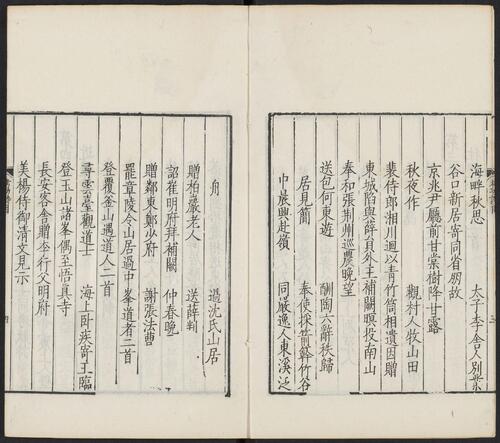 海畔秋思　太子李舍人別業
谷口新居寄同省朋故
京兆尹廳前甘棠樹降甘露
秋夜作　觀村人牧山田
裴侍郎湘川迴以青竹筒相遺因贈
東城陪與薛員外王補闕暝投南山
奉和張荊州巡農晚望
送包何東遊　酬陶六辭秩歸
居見簡　奉使採箭簳竹谷
中晨興赴嶺　同嚴逸人東溪泛
舟　過沈氏山居
贈柏巖老人　送薛判
詔崔明府拜補闕　仲春晚
贈鄰東鄭少府　謝張法曹
罷章陵令山居過中峯道者二首
登覆釜山遇道人二首
尋雲臺觀道士　海上卧疾寄王臨
登玉山諸峯偶至悟真寺
長安客舍贈李行父明府
美楊侍御清文見示